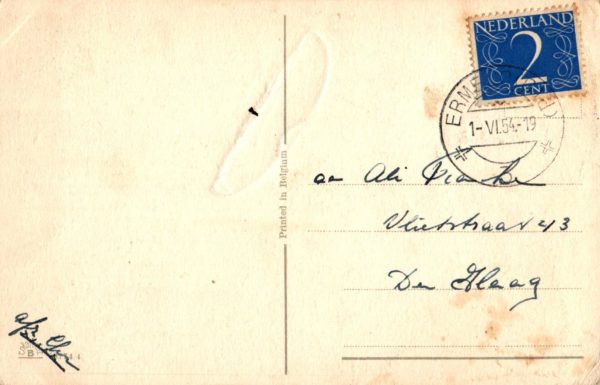 NEDERLAND
2
CENT
ERM
1-VI.54.-19
Printed in Belgium
aan Ali
Vlietstraat 43
Den Haag
afz.